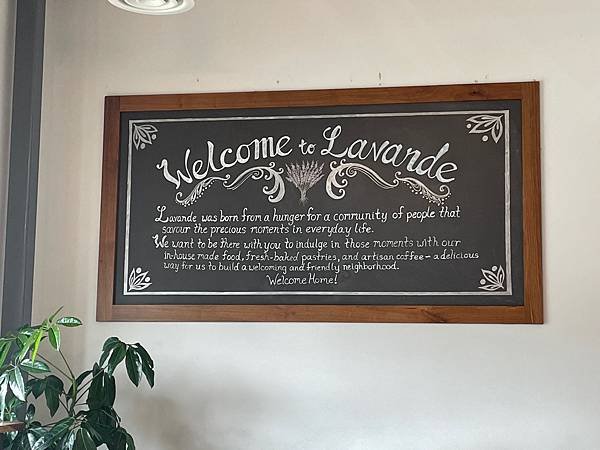 Welcome to Lavande
Lavande was born from a hunger for a community of people that
savour the precious moments in everyday life.
We want to be there with you to indulge in those moments with our
in-house made food, fresh-baked pastries, and artisan coffee - a delicious
way for us to build a welcoming and friendly neighborhood.
Welcome Home!